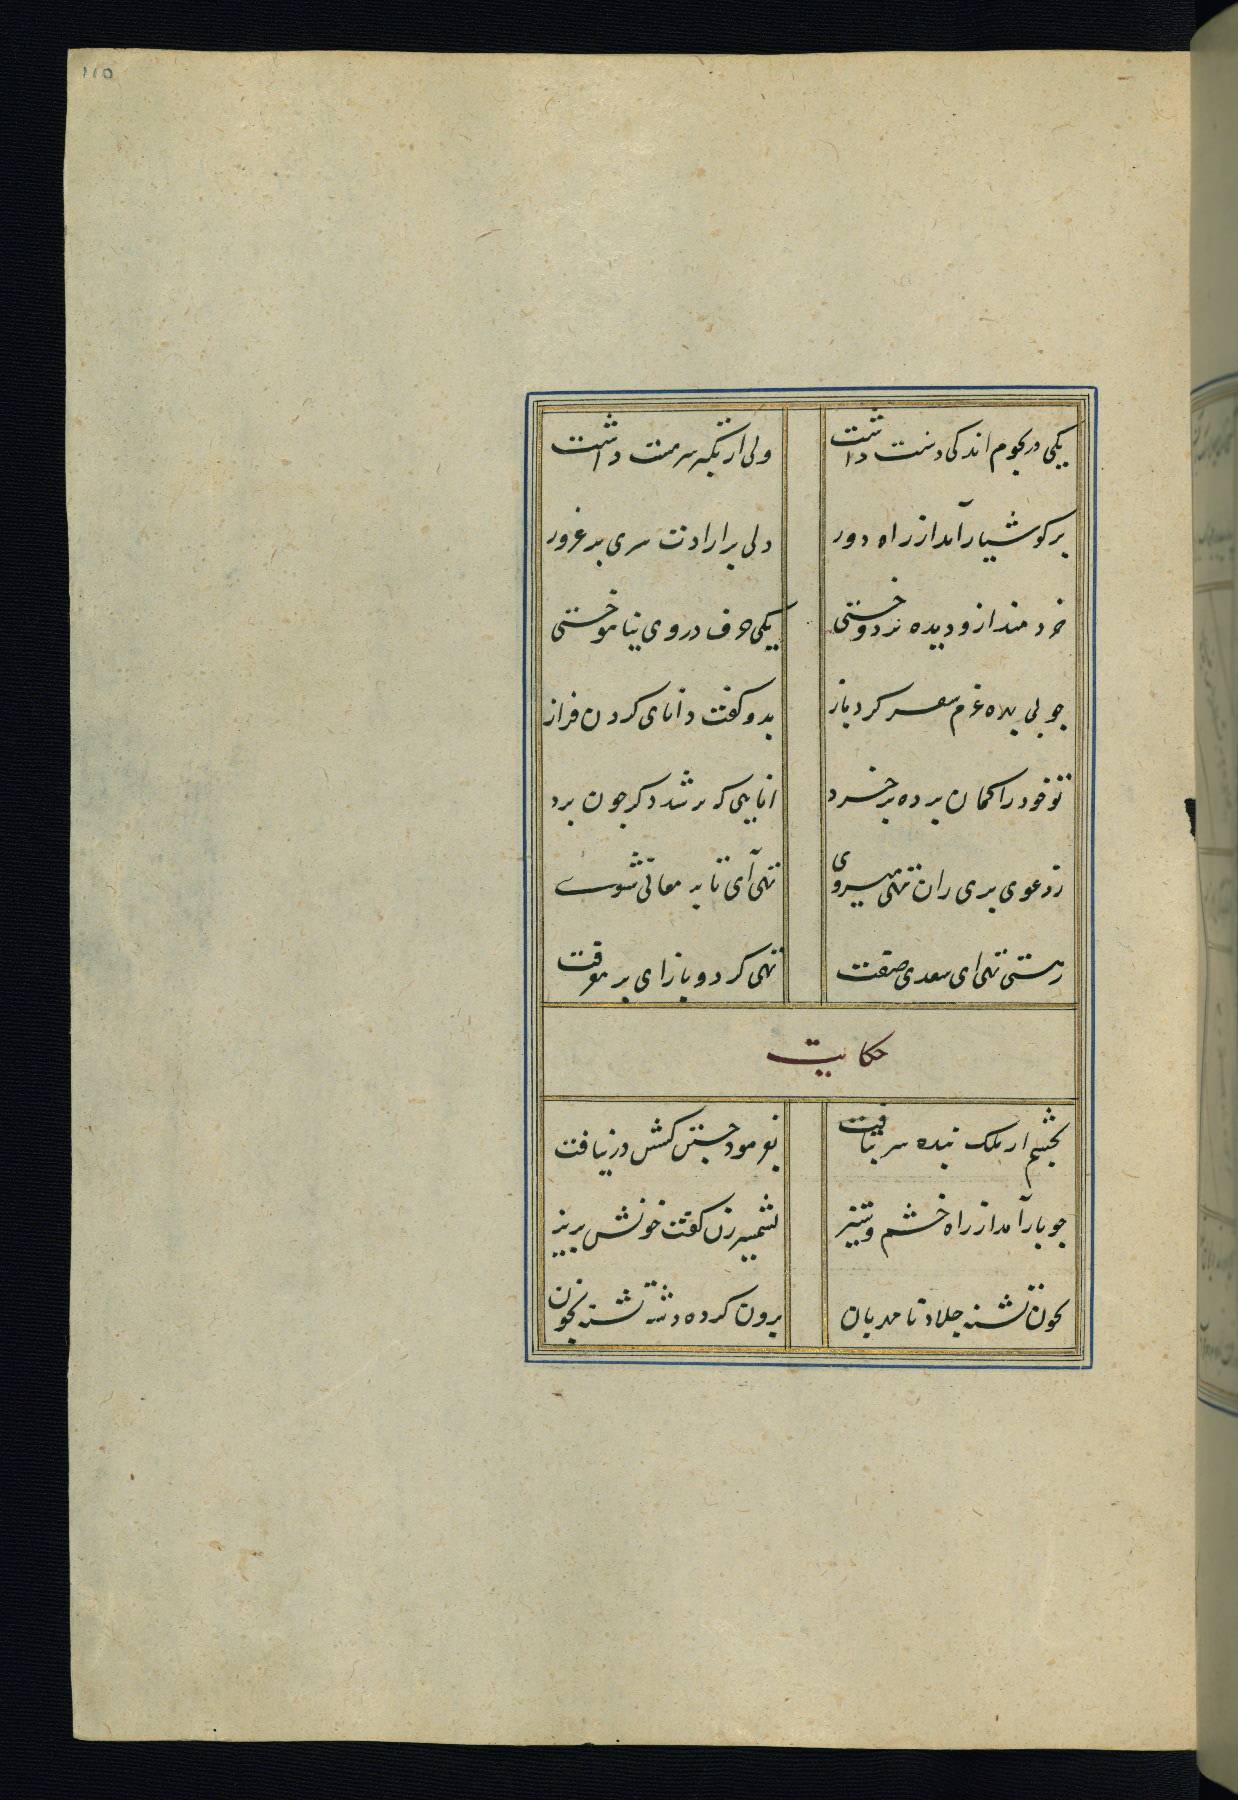 ۱۱۵
یکی در نجوم اندکی دست داشت
ولی از تکبر سر مست داشت
بر کوشیار آمد از راه دور
دلی پر ارادت سری پر غرور
خردمند ازو دیده بر دوختی
یکی حرف در وی نیاموختی
چو بی بهره عزم سفر کرد باز
بدو کفت دانای کردن فراز
تو خود را کمان برده پر خرد
انایی که پر شد دکر چون برد
ز دعوی پری زان تهی میروی
تهی آی تا پر معانی شوی
ز هستی تهی ای سعدی صفت
تهی کرد و باز ای پر معرفت
حکایت
بخشم از ملک بنده سر بتافت
بفرمود جستن کسش در نیافت
چو باز آمد از راه خشم و ستیز
بشمشیر زن کفت خونش بریز
بخون تشنه جلاد نا مهربان
برون کرده دشنه تشنه بخون